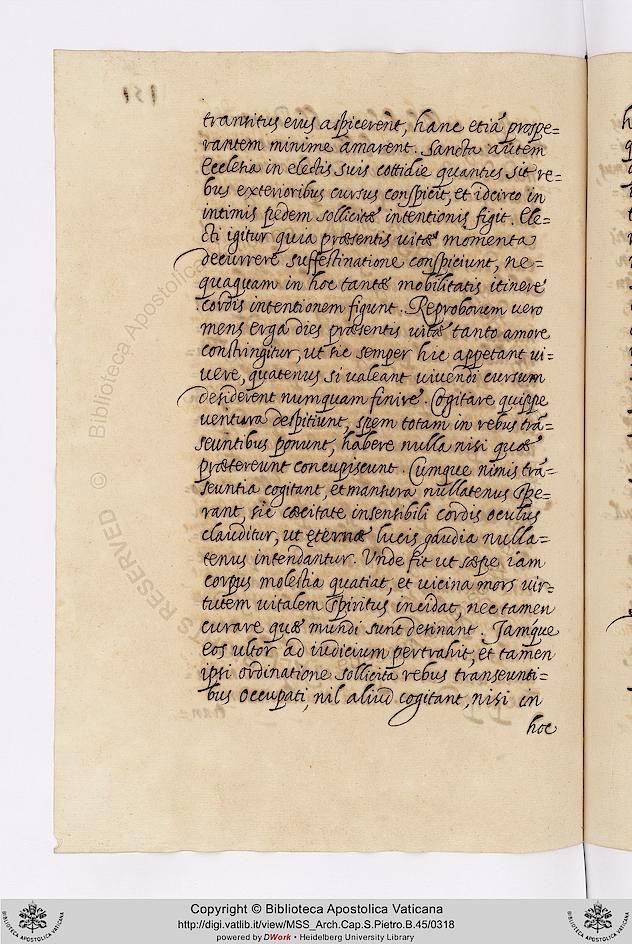 transitus eius aspicerent, hanc etiã prospe=
rantem minime amarent. Sancta autem
Ecclesia in electis suis cottidie quantus sit re=
bus exterioribus cursus conspicit, et idcirco in
intimis pedem sollicitæ intentionis figit. Ele=
cti igitur quia præsentis uitæ momenta
decurrere suffestinatione conspiciunt, ne=
quaquam in hoc tantæ mobilitatis itinere
cordis intentionem figunt. Reproborum uero
mens erga dies præsentis uitæ tanto amore
constringitur, ut sic semper hic appetant ui=
uere, quatenus si ualeant uiuendi cursum
desiderent numquam finire. Cogitare quippe
uentura despitiunt, spem totam in rebus trã=
seuntibus ponunt, habere nulla nisi quæ
prætereunt concupiscunt. Cumque nimis trã=
seuntia cogitant, et mansura nullatenus spe=
rant, sic cæcitate insensibili cordis oculus
clauditur, ut ęternæ lucis gaudia nulla=
tenus intendantur. Vnde fit ut sæpe iam
corpus molestia quatiat, et uicina mors uir=
tutem uitalem spiritus incidat, nec tamen
curare quæ mundi sunt desinant. Iamque
eos ultor ad iudicium pertrahit, et tamen
ipsi ordinatione sollicita rebus transeunti=
bus occupati, nil aliud cogitant, nisi in
hoc
© Biblioteca Apostolica
Copyright © Biblioteca Apostolica Vaticana
http://digi.vatlib.it/view/MSS_Arch.Cap.S.Pietro.B.45/0318
powered by DWork • Heidelberg University Library